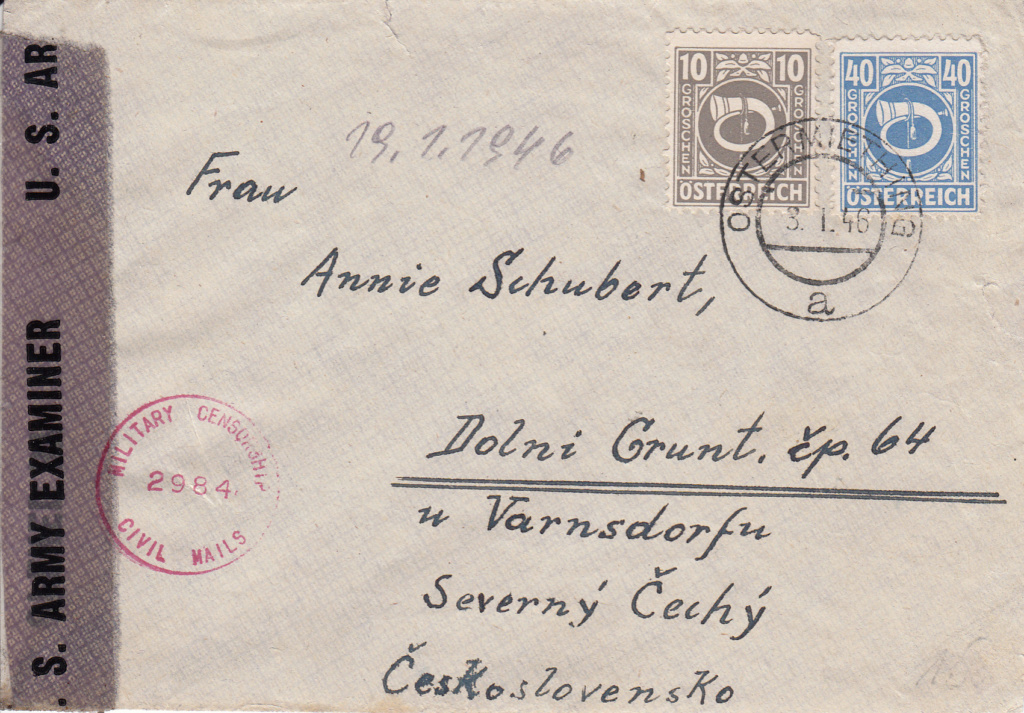 U. S. AR
. S. ARMY EXAMINER
10 10
GROSCHEN GROSCHEN
ÖSTERREICH
40 40
GROSCHEN GROSCHEN
ÖSTERREICH
OSTERMIETHING
3. I. 46
a
19.1.1946
Frau
Annie Schubert,
Dolni Grunt. čp. 64
u Varnsdorfu
Severný Čechý
Československo
MILITARY CENSORSHIP
2984
CIVIL MAILS